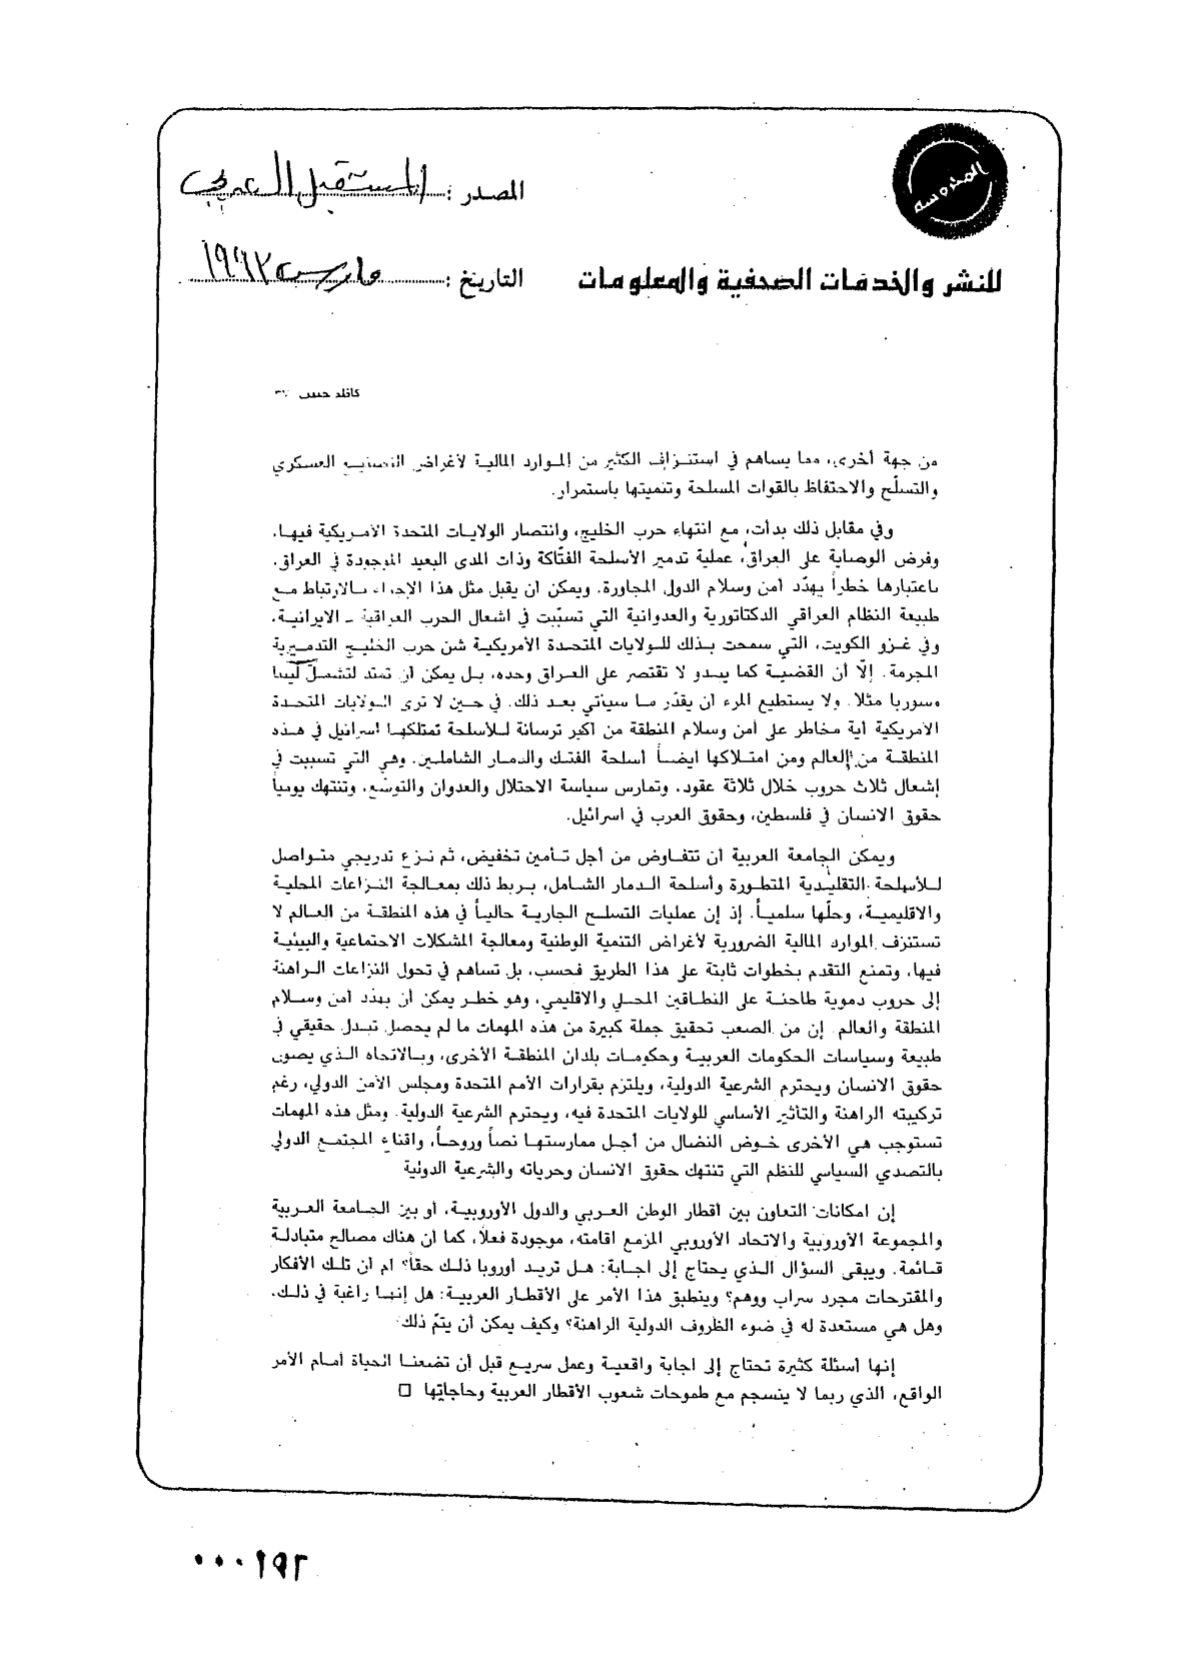 المحروسة
المصدر : المستقبل العربي
للنشر والخدمات الصحفية والمعلومات
التاريخ : مارس ١٩٩٢
كاظم حبيب
من جهة أخرى، مما يساهم في استنزاف الكثير من الموارد المالية لأغراض التصنيع العسكري
والتسلّح والاحتفاظ بالقوات المسلحة وتنميتها باستمرار.
وفي مقابل ذلك بدأت، مع انتهاء حرب الخليج، وانتصار الولايات المتحدة الأمريكية فيها،
وفرض الوصاية على العراق، عملية تدمير الأسلحة الفتّاكة وذات المدى البعيد الموجودة في العراق،
باعتبارها خطراً يهدّد أمن وسلام الدول المجاورة. ويمكن أن يقبل مثل هذا الإجراء بالارتباط مع
طبيعة النظام العراقي الدكتاتورية والعدوانية التي تسبّبت في اشعال الحرب العراقية ـ الايرانية،
وفي غزو الكويت، التي سمحت بذلك للولايات المتحدة الأمريكية شن حرب الخليج التدميرية
المجرمة. إلّا أن القضية كما يبدو لا تقتصر على العراق وحده، بل يمكن أن تمتد لتشمل ليبيا
وسوريا مثلا. ولا يستطيع المرء أن يقدّر ما سيأتي بعد ذلك. في حين لا ترى الولايات المتحدة
الأمريكية أية مخاطر على أمن وسلام المنطقة من أكبر ترسانة للأسلحة تمتلكها اسرائيل في هذه
المنطقة من العالم ومن امتلاكها ايضاً أسلحة الفتك والدمار الشاملين. وهي التي تسببت في
إشعال ثلاث حروب خلال ثلاثة عقود، وتمارس سياسة الاحتلال والعدوان والتوسّع، وتنتهك يومياً
حقوق الانسان في فلسطين، وحقوق العرب في اسرائيل.
ويمكن الجامعة العربية أن تتفاوض من أجل تأمين تخفيض، ثم نزع تدريجي متواصل
للأسلحة التقليدية المتطورة وأسلحة الدمار الشامل، بربط ذلك بمعالجة النزاعات المحلية
والاقليمية، وحلّها سلمياً. إذ إن عمليات التسلح الجارية حالياً في هذه المنطقة من العالم لا
تستنزف الموارد المالية الضرورية لأغراض التنمية الوطنية ومعالجة المشكلات الاجتماعية والبيئية
فيها، وتمنع التقدم بخطوات ثابتة على هذا الطريق فحسب، بل تساهم في تحول النزاعات الراهنة
إلى حروب دموية طاحنة على النطاقين المحلي والاقليمي، وهو خطر يمكن أن يهدّد أمن وسلام
المنطقة والعالم. إن من الصعب تحقيق جملة كبيرة من هذه المهمات ما لم يحصل تبدل حقيقي في
طبيعة وسياسات الحكومات العربية وحكومات بلدان المنطقة الأخرى، وبالاتجاه الذي يصون
حقوق الانسان ويحترم الشرعية الدولية، ويلتزم بقرارات الأمم المتحدة ومجلس الأمن الدولي، رغم
تركيبته الراهنة والتأثير الأساسي للولايات المتحدة فيه، ويحترم الشرعية الدولية. ومثل هذه المهمات
تستوجب هي الأخرى خوض النضال من أجل ممارستها نصاً وروحاً، واقناع المجتمع الدولي
بالتصدي السياسي للنظم التي تنتهك حقوق الانسان وحرياته والشرعية الدولية
إن امكانات التعاون بين أقطار الوطن العربي والدول الأوروبية، أو بين الجامعة العربية
والمجموعة الأوروبية والاتحاد الأوروبي المزمع اقامته، موجودة فعلاً، كما أن هناك مصالح متبادلة
قائمة. ويبقى السؤال الذي يحتاج إلى اجابة: هل تريد أوروبا ذلك حقاً؟ ام ان تلك الأفكار
والمقترحات مجرد سراب ووهم؟ وينطبق هذا الأمر على الأقطار العربية: هل إنها راغبة في ذلك،
وهل هي مستعدة له في ضوء الظروف الدولية الراهنة؟ وكيف يمكن أن يتمّ ذلك
إنها أسئلة كثيرة تحتاج إلى اجابة واقعية وعمل سريع قبل أن تضعنا الحياة أمام الأمر
الواقع، الذي ربما لا ينسجم مع طموحات شعوب الأقطار العربية وحاجاتها □
٠٠٠١٩٢